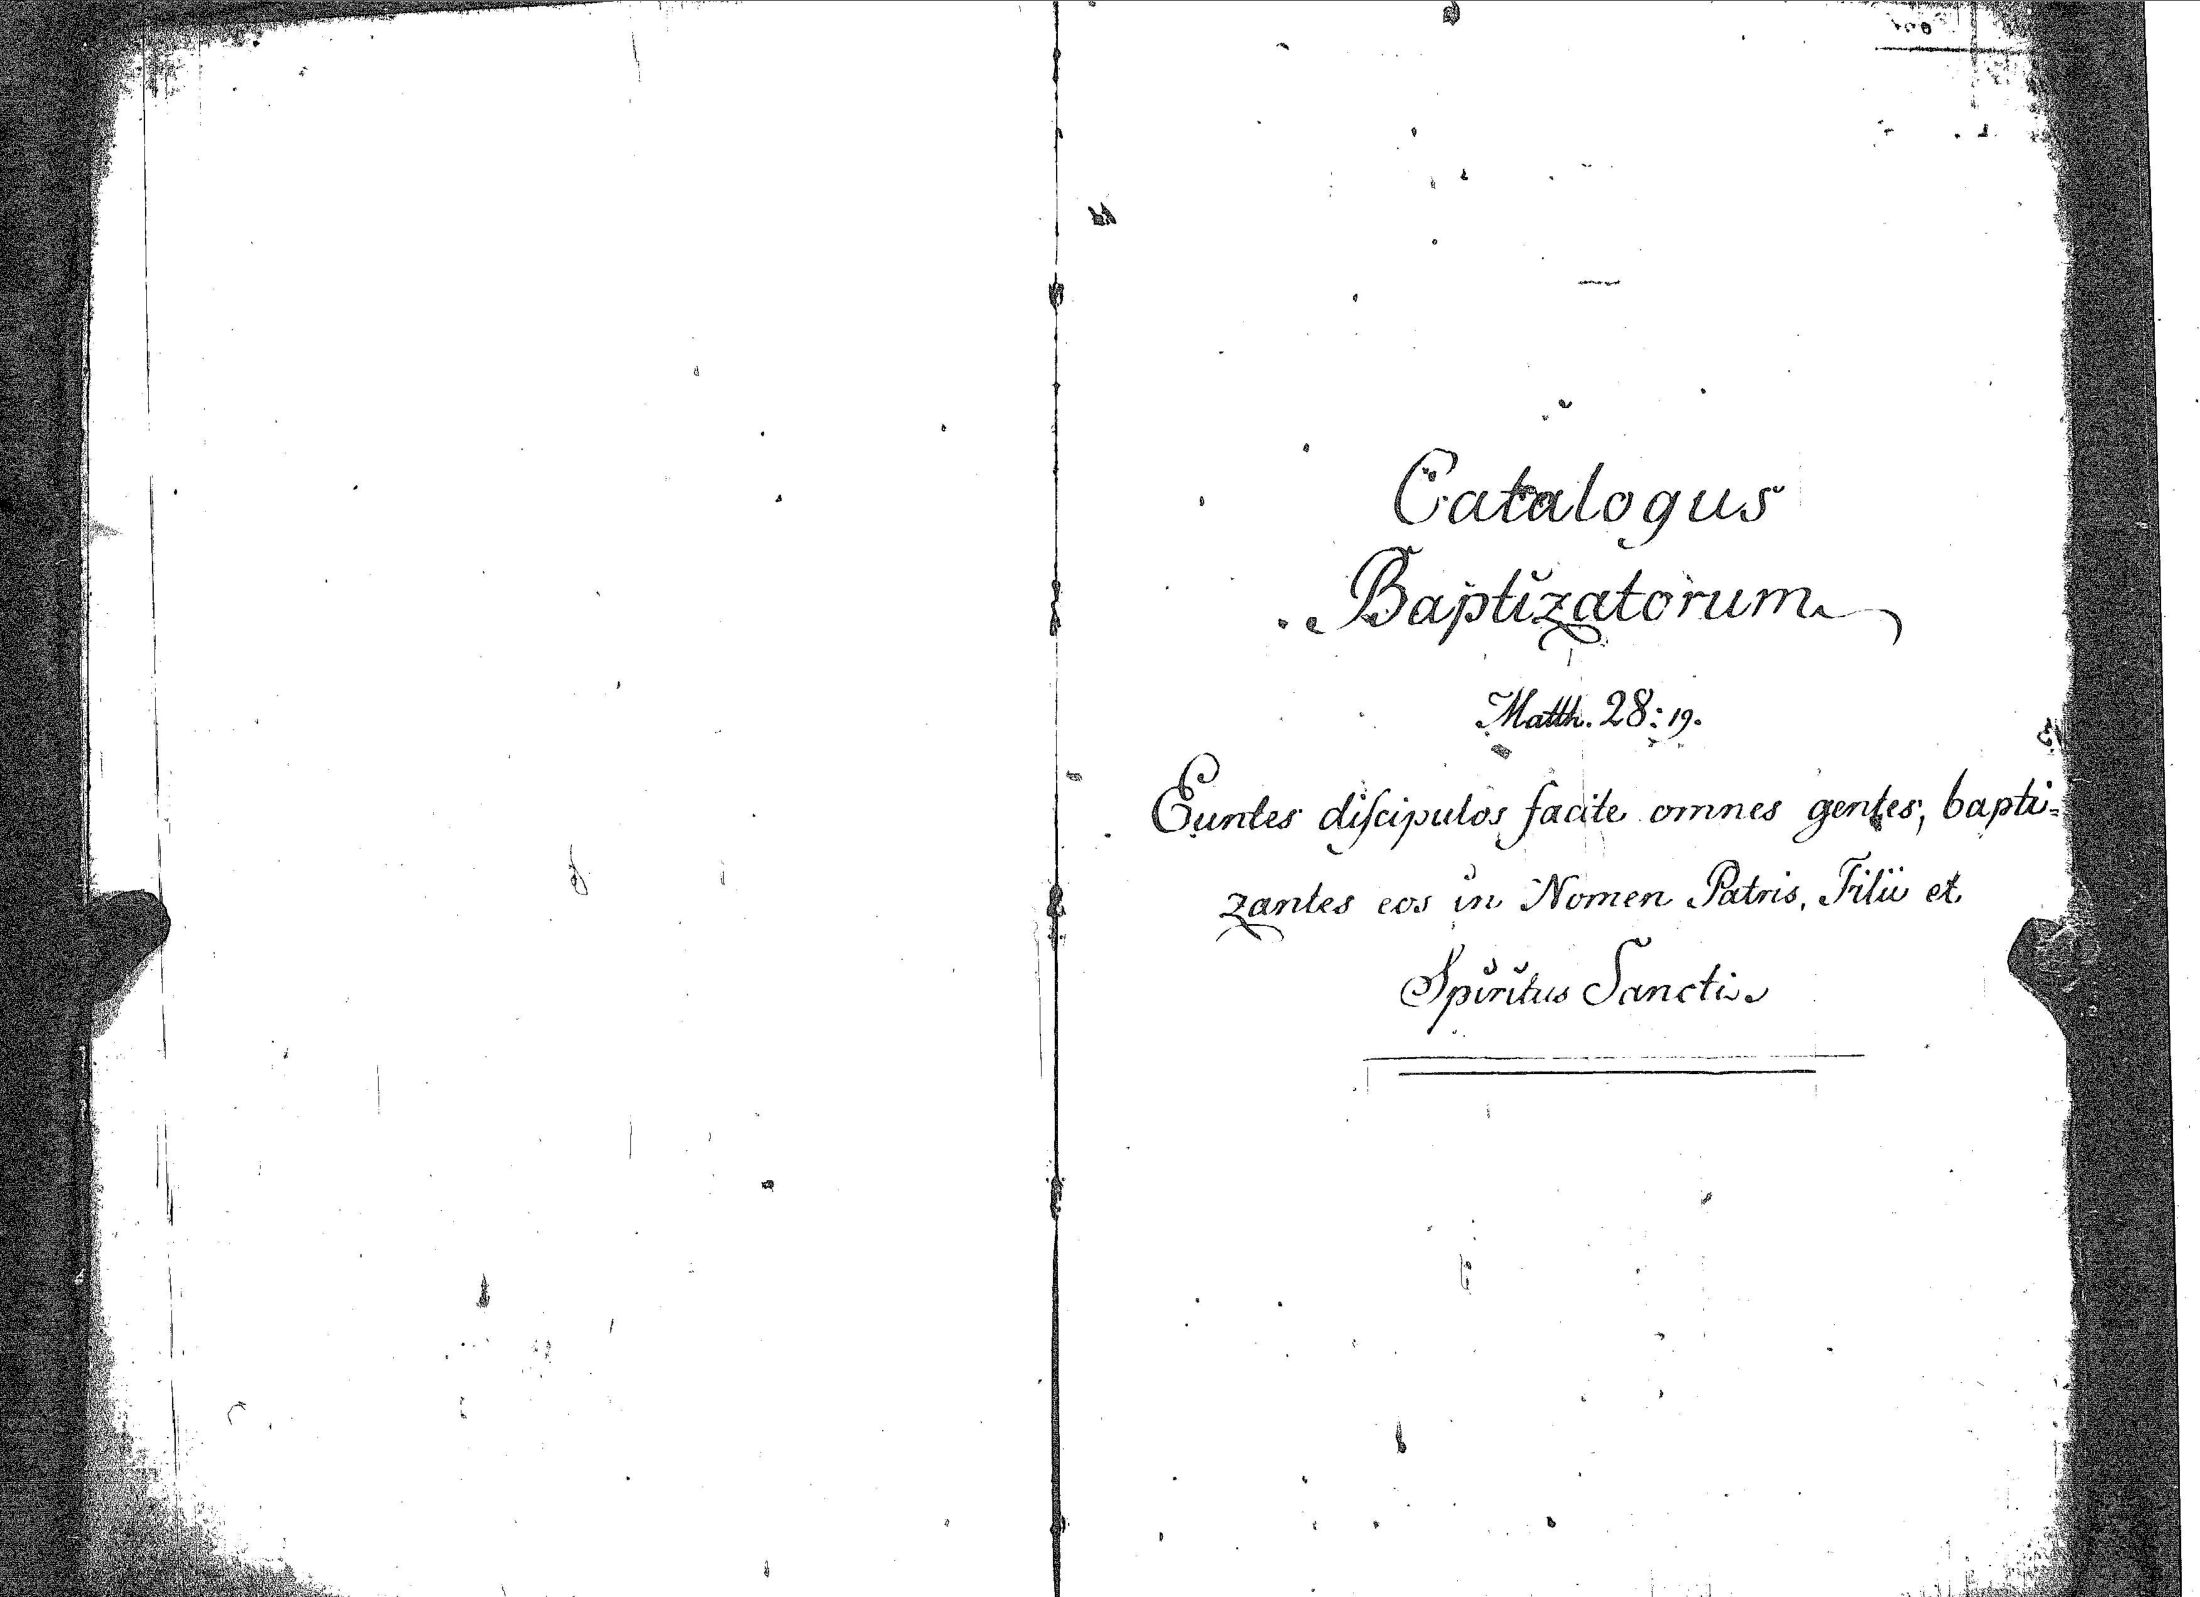 Catalogus
Baptizatorum
Matth. 28: 19.
Euntes diſcipulos facite omnes gentes, bapti=
zantes eos in Nomen Patris, Filii et
Spiritus Sancti.